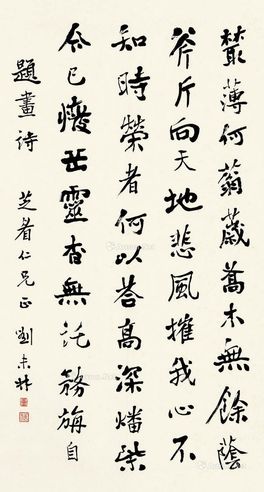 藂薄何蓊薉喬木無餘蔭
斧斤向天地悲風摧我心不
知時榮者何以荅高深燔柴
今已癈岳靈杳無託務旃自
題畫詩 芝眉仁兄正 劉未林